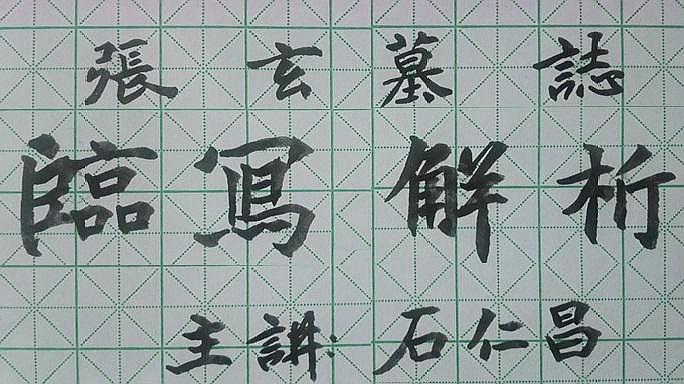 張玄墓誌
臨寫解析
主講:石仁昌